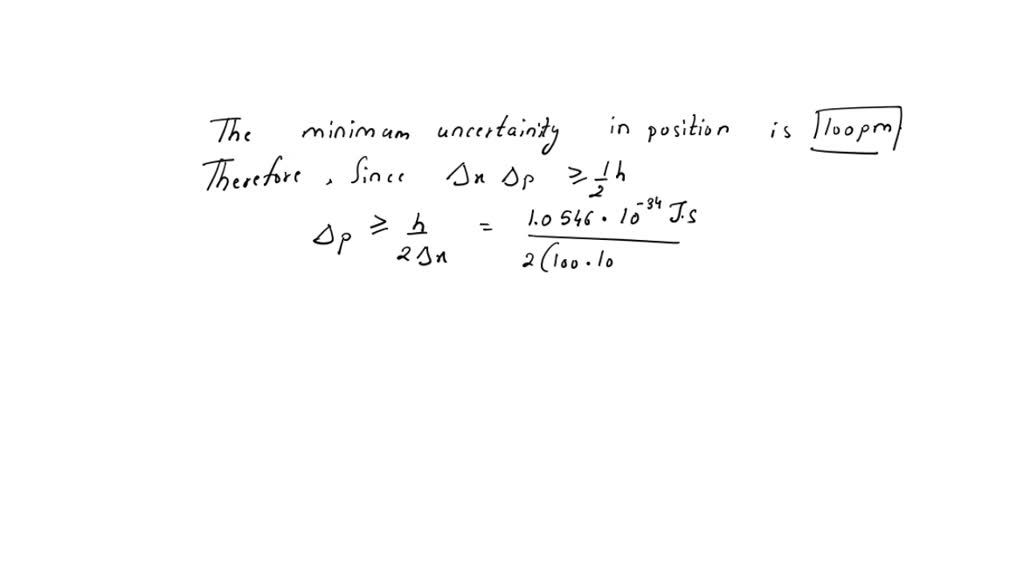 The minimum uncertainity in position is 100pm
Therefore, Since Δx Δp ≥ 1/2 h
Δp ≥ h/2Δx = 1.0546 · 10^-34 J.s / 2(100 · 10